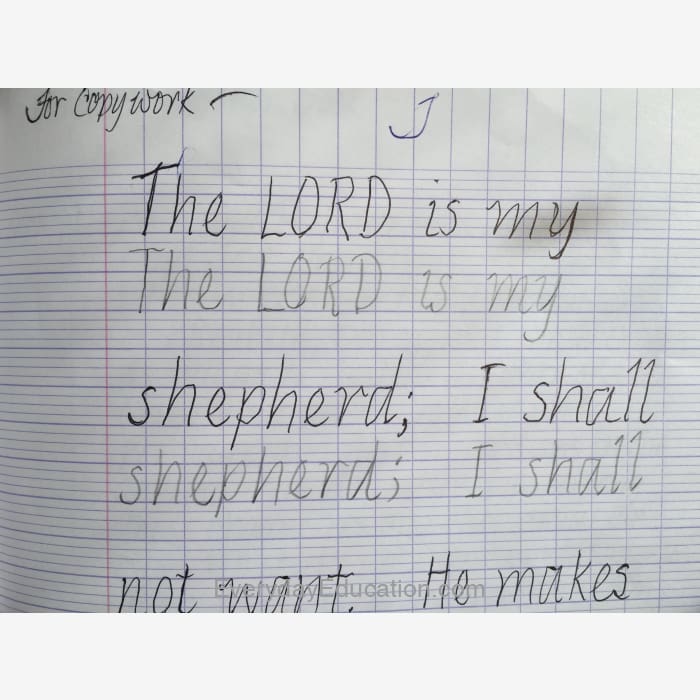 For Copywork —
J
The LORD is my
The LORD is my
shepherd; I shall
shepherd; I shall
not want. He makes
EverydayEducation.com